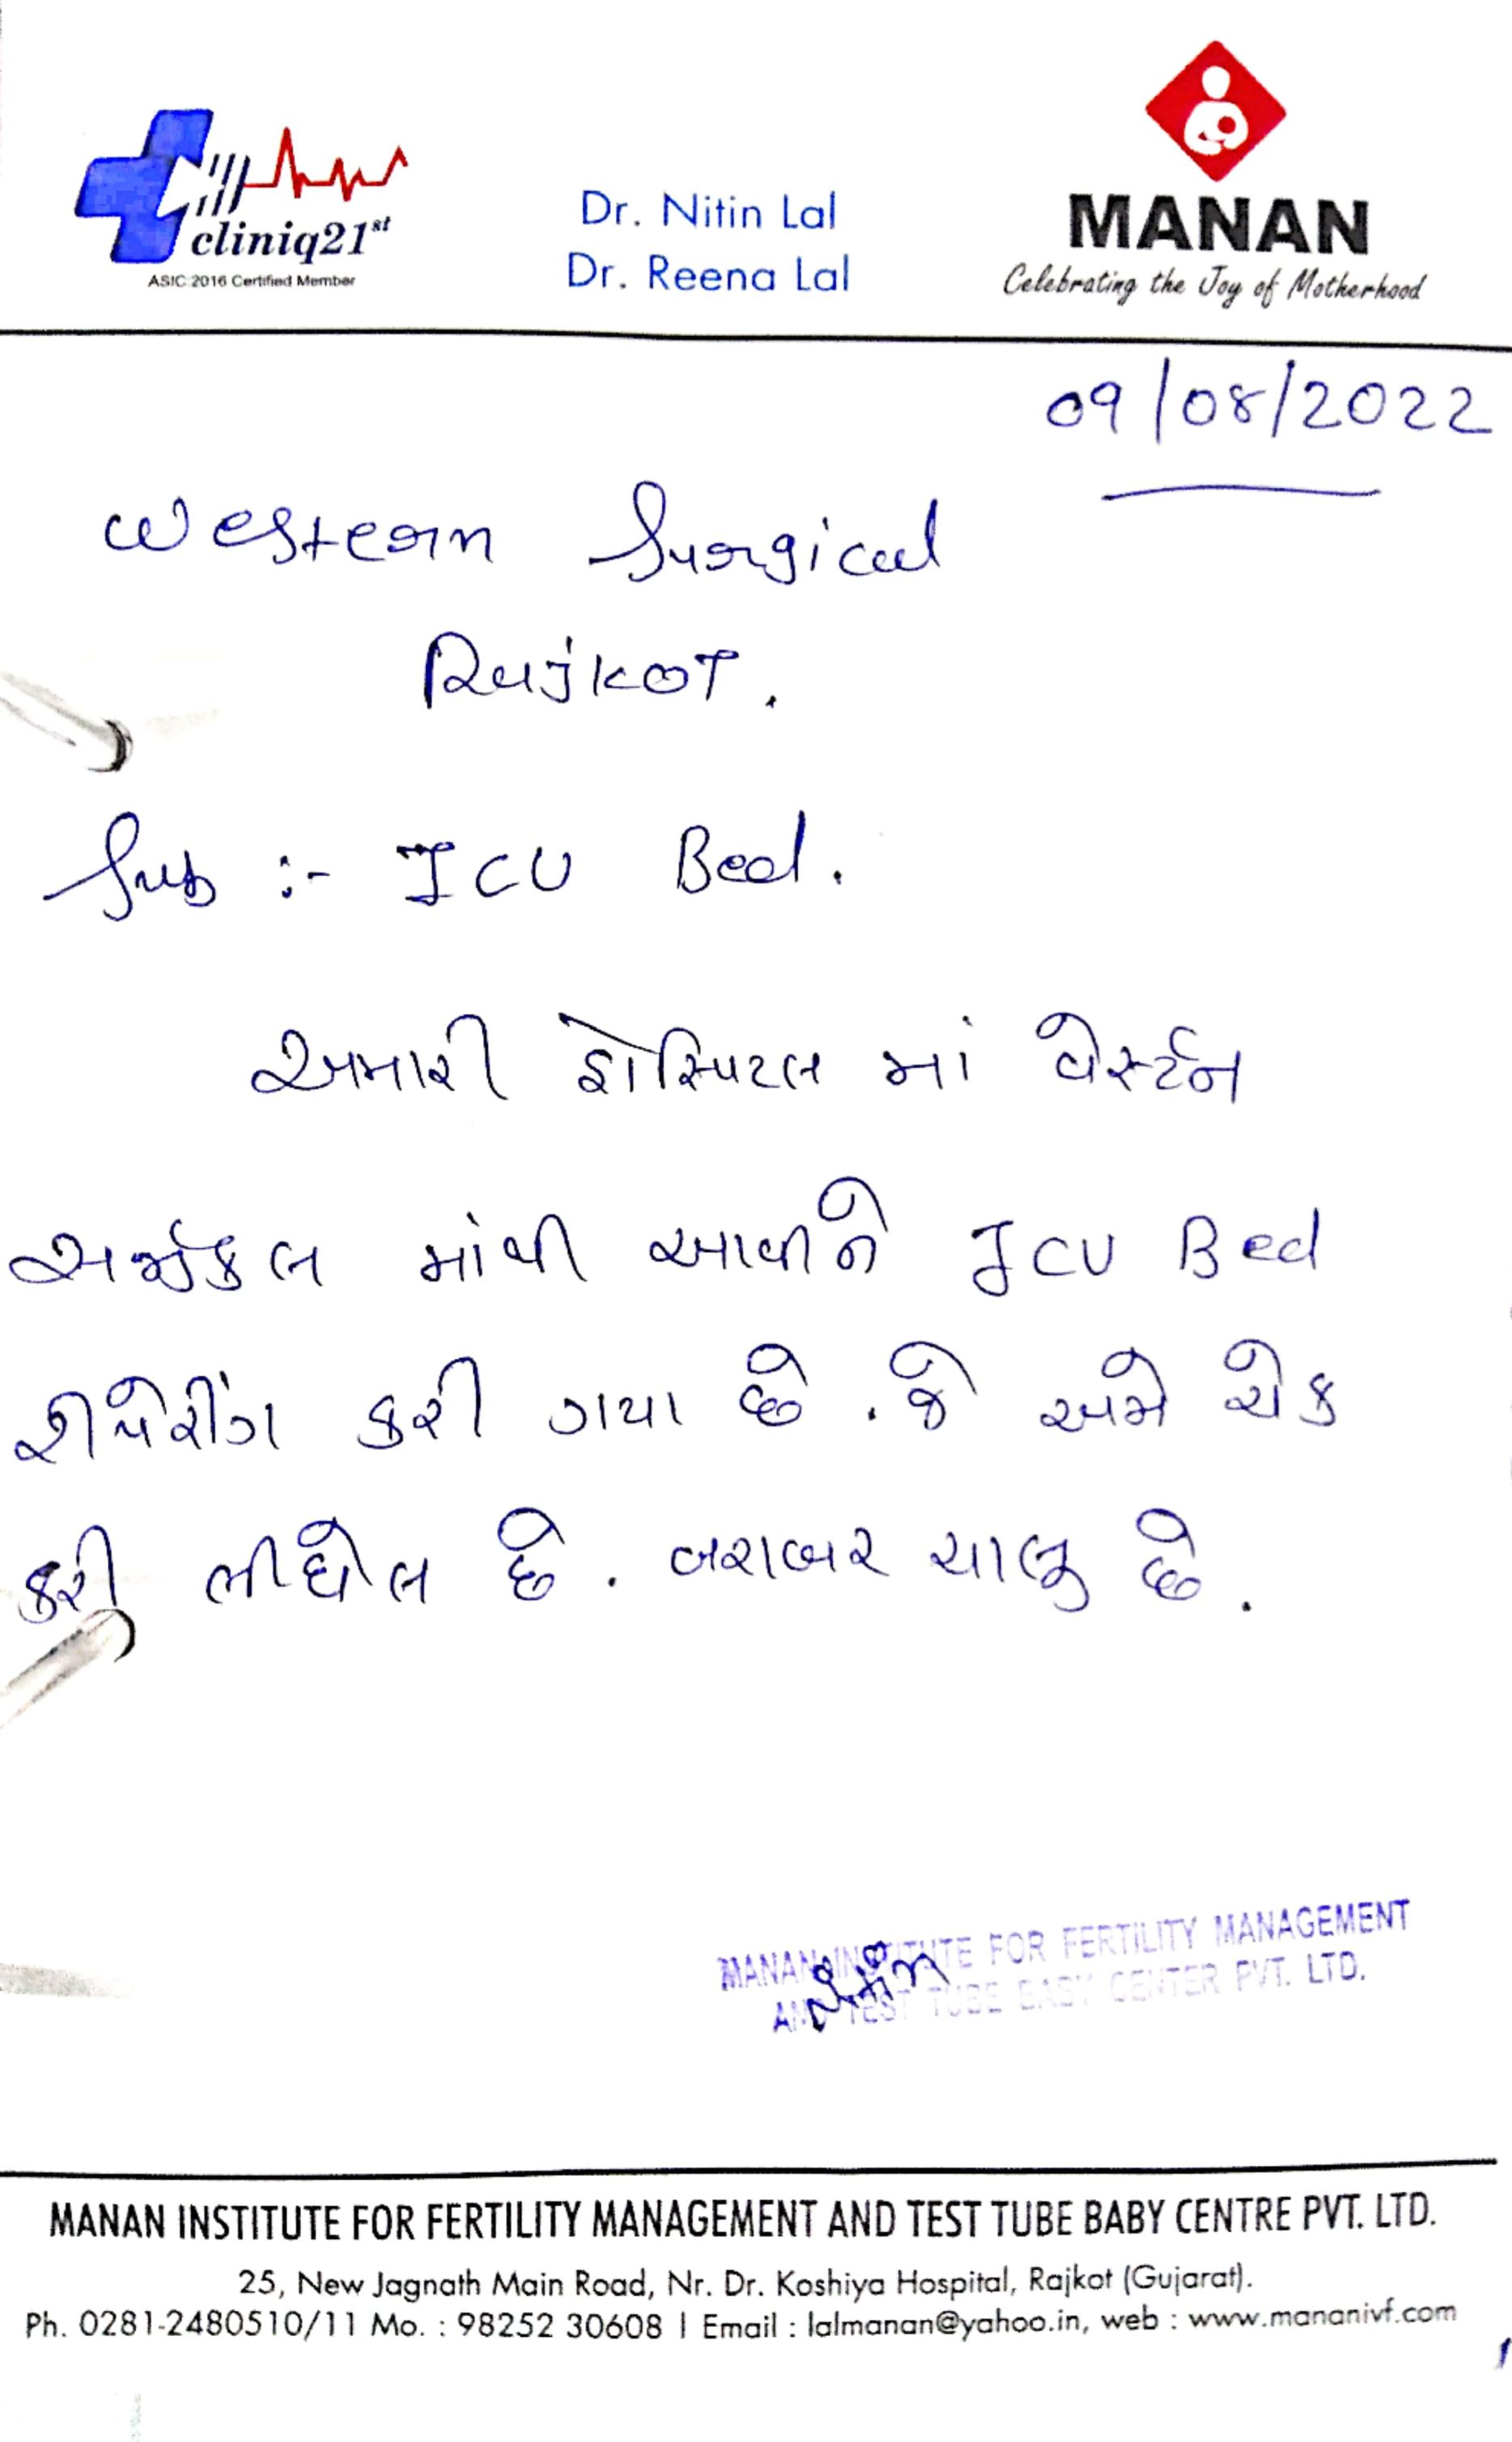 cliniq21st
ASIC 2016 Certified Member
Dr. Nitin Lal
Dr. Reena Lal
MANAN
Celebrating the Joy of Motherhood
09/08/2022
Western Surgical
Rajkot.
Sub :- ICU Bed.
અમારી હોસ્પિટલ માં વેર્સ્ટન
સર્જીકલ માંથી આવીને ICU Bed
રીપેરીંગ કરી ગયા છે. જે અમે ચેક
કરી લીધેલ છે. બરાબર ચાલુ છે.
MANAN INSTITUTE FOR FERTILITY MANAGEMENT
AND TEST TUBE BABY CENTER PVT. LTD.
MANAN INSTITUTE FOR FERTILITY MANAGEMENT AND TEST TUBE BABY CENTRE PVT. LTD.
25, New Jagnath Main Road, Nr. Dr. Koshiya Hospital, Rajkot (Gujarat).
Ph. 0281-2480510/11 Mo. : 98252 30608 | Email : lalmanan@yahoo.in, web : www.mananivf.com